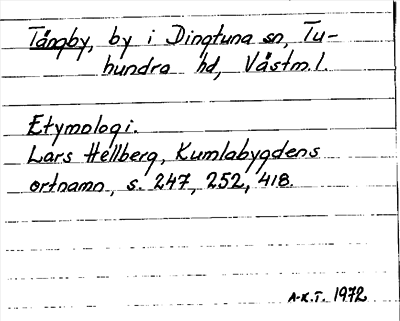 Tångby, by i Dingtuna sn, Tu-
hundra hd, Västm.l.
Etymologi.
Lars Hellberg, Kumlabygdens
ortnamn, s. 247, 252, 418.
A-K.T. 1972